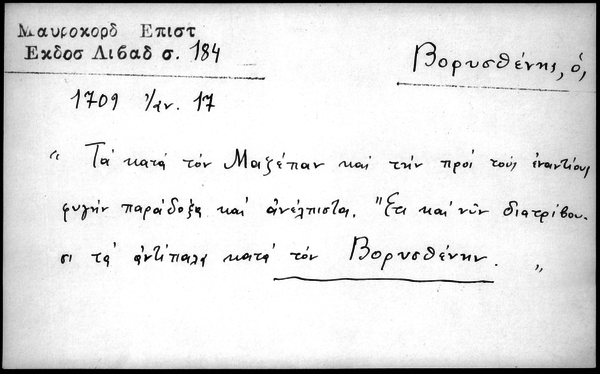 Μαυροκορδ Επιστ
Εκδοσ Λιβαδ σ. 184
Βορυσθένης, ὁ,
1709 Ἰαν. 17
" Τὰ κατὰ τὸν Μαζέπαν καὶ τὴν πρὸς τοὺς ἐναντίους
φυγὴν παράδοξα καὶ ἀνέλπιστα. Ἔτι καὶ νῦν διατρίβου-
σι τὰ ἀντίπαλα κατὰ τὸν Βορυσθένην. "